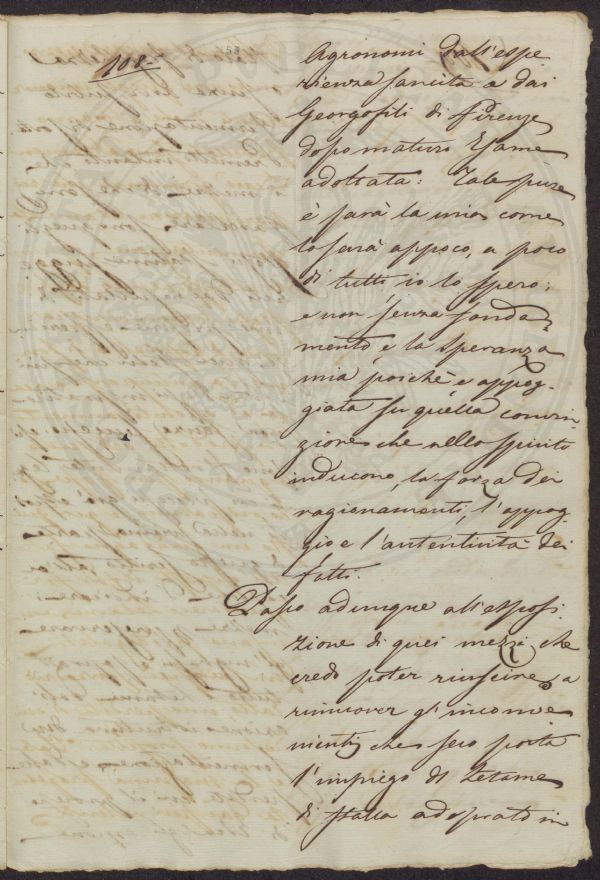 108-
53
Agronomi dall'espe
rienza sancita a dai
Georgofili di Firenze
dopo maturo Esame
adottata: Tale pure
è sarà la mia come
lo sarà appoco, a poco
di tutti io lo spero;
e non senza fonda=
mento è la speranza
mia poichè è appog-
giata su quella convin
zione che nello spirito
inducono, la forza dei
ragionamenti, l'appog
gio e l'autenticità dei
fatti.
Passo adunque all'esposi
zione di quei mezzi che
credo poter riuscire a
rimuover gl'inconve
nienti che seco porta
l'impiego di Letame
di stalla adoprato in